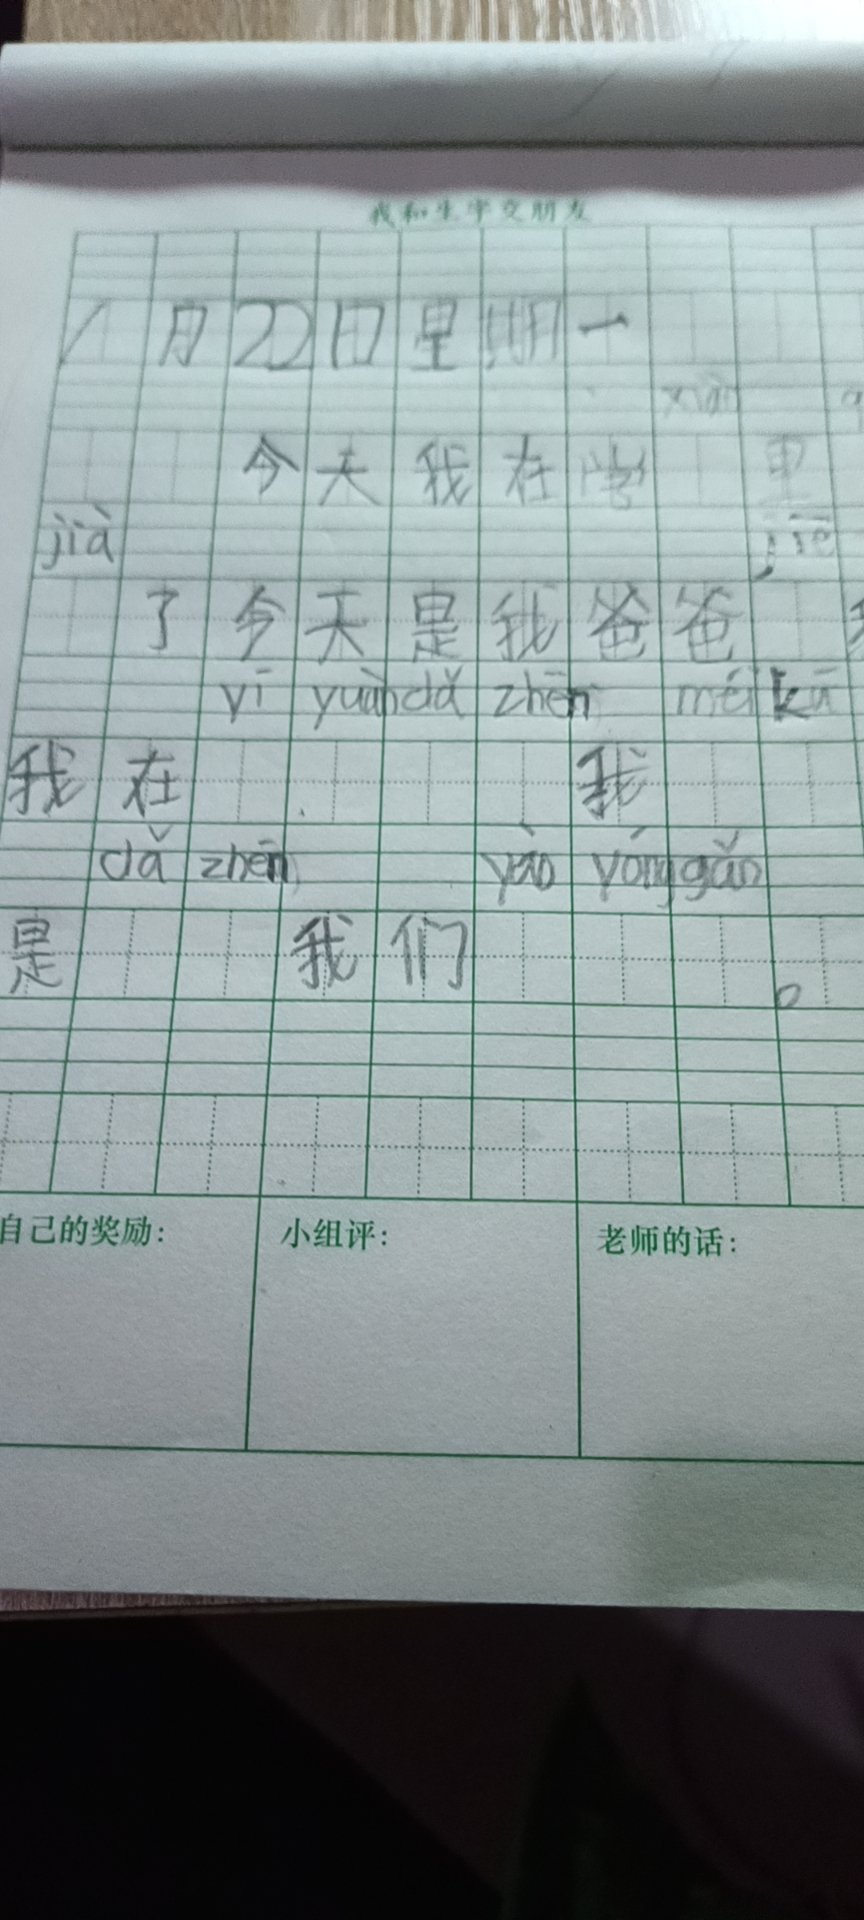 我和生字交朋友
1月22日星期一
xiào
今天我在学 里
jià jiē
了今天是我爸爸
yī yuàn dǎ zhēn méi kū
我在 我
dǎ zhēn yào yǒng gǎn
是 我们 。
自己的奖励: 小组评: 老师的话: